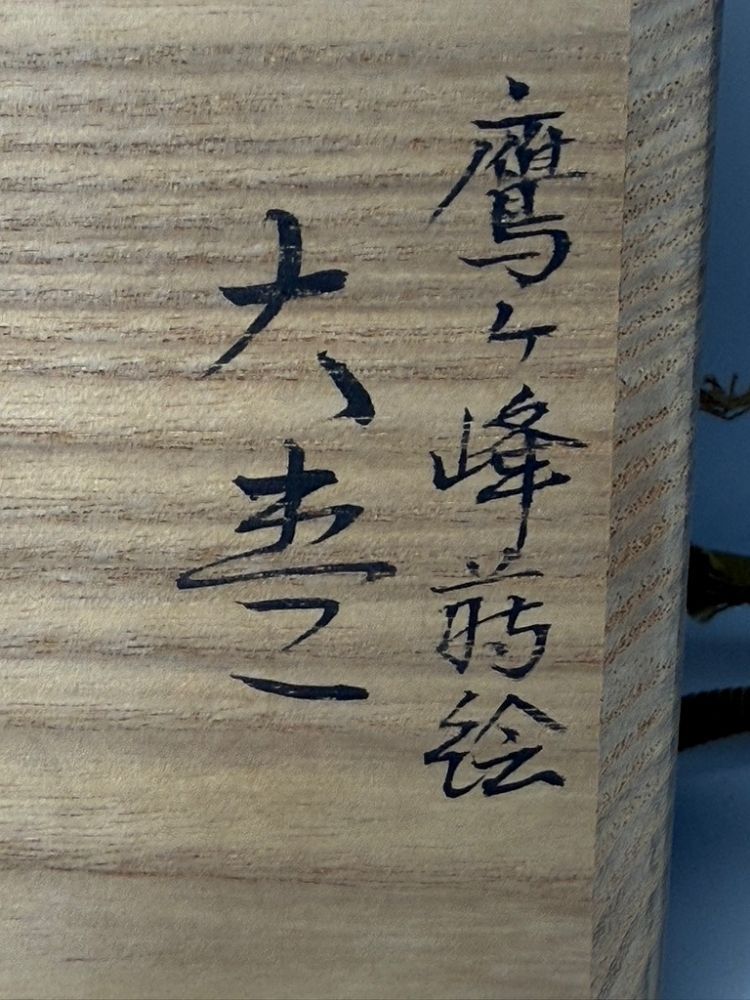 鷹ヶ峰蒔絵
大棗